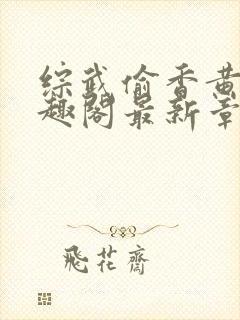 综武偷香黄
趣阁最新章
飛花齋